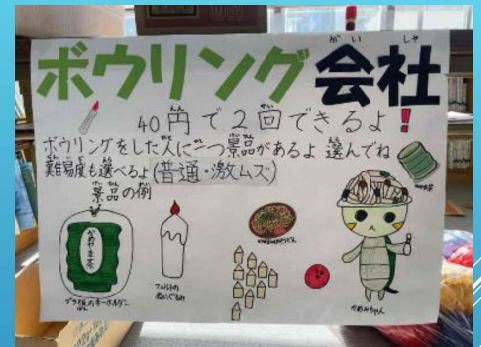 ボウリング会社
がいしゃ
40円で2回できるよ!
えん かい
ボウリングをした人に一つ景品があるよ 選んでね
難易度も選べるよ(普通・激ムズ)
景品の例
かめやま茶
プラ板のキーホルダー
フェルトのぬいぐるみ
かめみちゃん